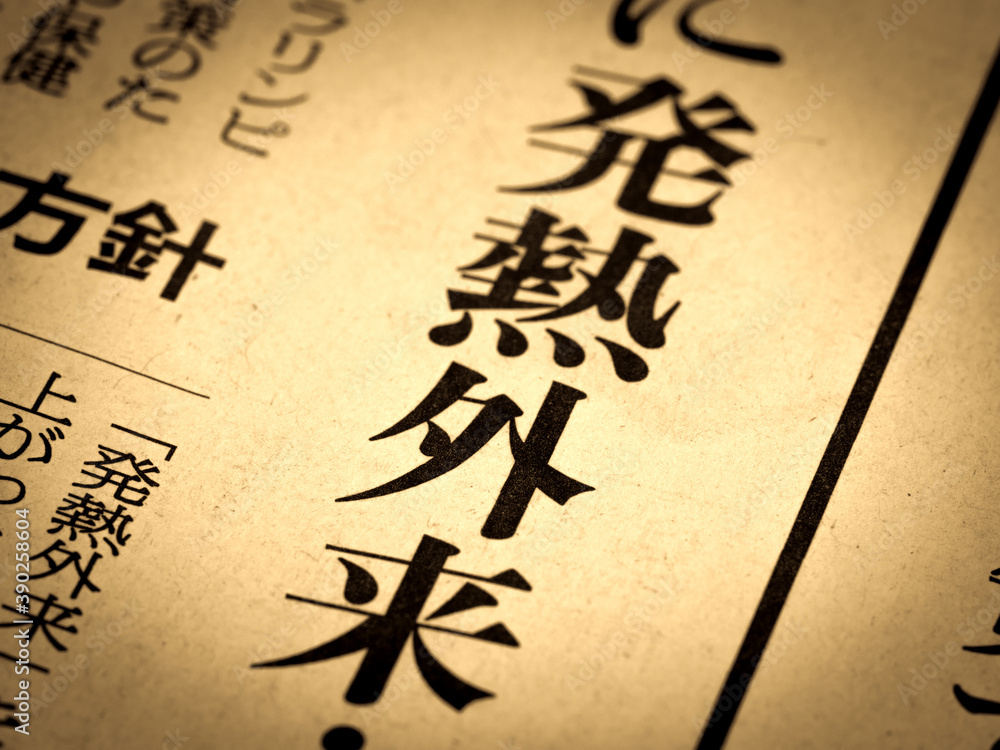 に発熱外来・
ラリンピ
策のた
保健
方針
「発熱外来」
上がっ
Adobe Stock | #390258604